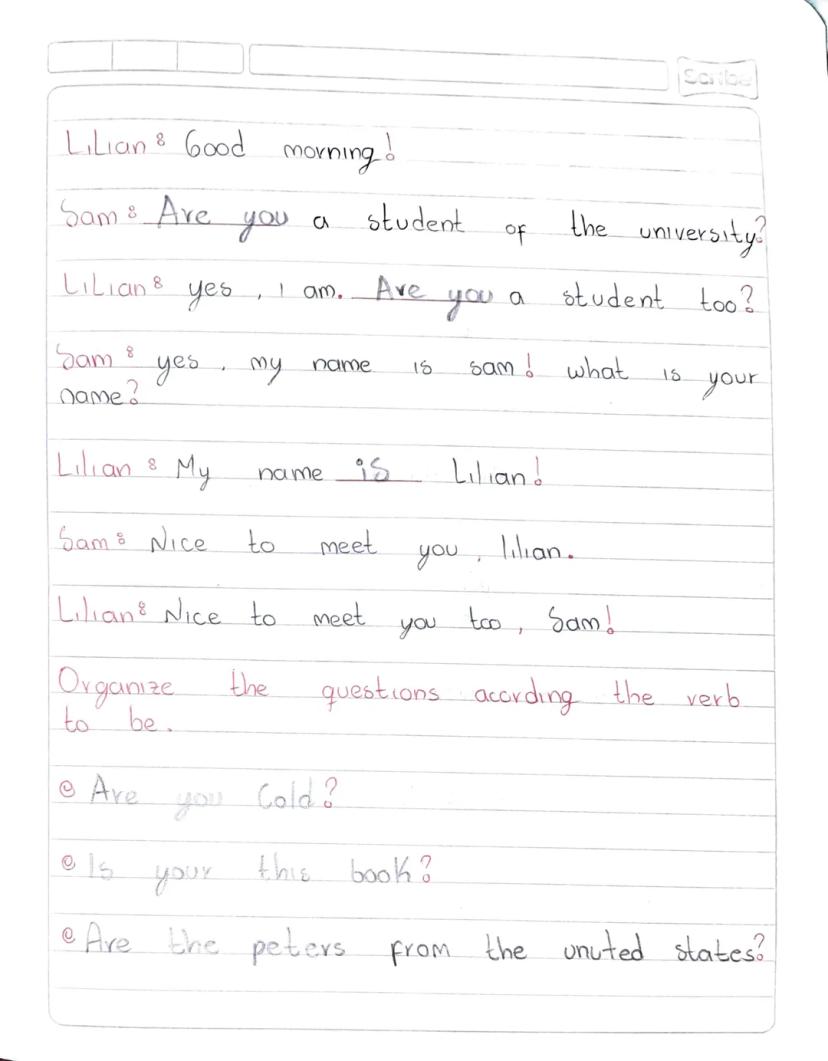 Scribe
Lilian: Good morning!
Sam: Are you a student of the university?
Lilian: yes, I am. Are you a student too?
Sam: yes, my name is sam! what is your
name?
Lilian: My name is Lilian!
Sam: Nice to meet you, lilian.
Lilian: Nice to meet you too, Sam!
Organize the questions acording the verb
to be.
Are you Cold?
Is your this book?
Are the peters from the unuted states?